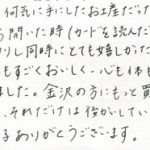 何気に手にしたお土産だった
開いた時(カードを読んだ
りし同時にとても嬉しかった
もすごくおいしく、心も体も
ました。金沢の方にもっと買
、それだけは俗がしてい
ありがとうございます。